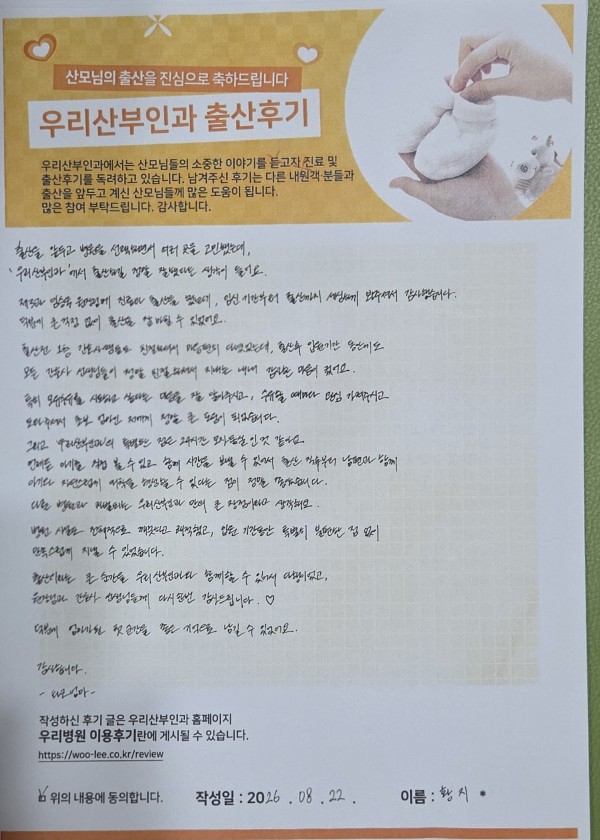 산모님의 출산을 진심으로 축하드립니다
우리산부인과 출산후기
우리산부인과에서는 산모님들의 소중한 이야기를 듣고자 진료 및
출산후기를 독려하고 있습니다. 남겨주신 후기는 다른 내원객 분들과
출산을 앞두고 계신 산모님들께 많은 도움이 됩니다.
많은 참여 부탁드립니다. 감사합니다.
출산을 앞두고 병원을 선택하면서 여러 곳을 고민했는데,
우리산부인과에서 출산하길 정말 잘했다는 생각이 들어요.
제3과 원장님께 진료와 출산을 했는데, 임신 기간부터 출산까지 세심하게 봐주셔서 감사했습니다.
덕분에 큰 걱정 없이 출산을 잘 마칠 수 있었어요.
출산전 1층 간호사쌤들도 친절하셔서 다녔었는데, 출산후 입원기간 동안에도
모든 간호사 선생님들이 정말 친절하셔서 지내는 내내 감사한 마음이 컸어요.
특히 모유수유를 시도하고 싶다는 마음을 잘 알아주시고, 수유할 때마다 관심 가져주시고
도와주셔서 초보 엄마인 저에게 정말 큰 도움이 되었습니다.
그리고 우리산부인과의 특별한 점은 24시간 모자동실인 것 같아요.
언제든 아기를 직접 볼 수 있고 함께 시간을 보낼 수 있어서 출산 직후부터 남편과 함께
아기와 자연스럽게 애착을 형성할 수 있다는 점이 정말 좋았습니다.
다른 병원과 차별되는 우리산부인과만의 큰 장점이라고 생각해요.
병원 시설도 전체적으로 깨끗하고 쾌적했고, 입원 기간동안 특별히 불편한 점 없이
만족스럽게 지낼 수 있었습니다.
출산이라는 큰 순간을 우리산부인과와 함께할 수 있어서 다행이었고,
원장님과 간호사 선생님들께 다시 한번 감사드립니다. ♡
덕분에 엄마가 된 첫 순간을 좋은 기억으로 남길 수 있었어요.
감사합니다.
작성하신 후기 글은 우리산부인과 홈페이지
우리병원 이용후기란에 게시될 수 있습니다.
https://woo-lee.co.kr/review
위의 내용에 동의합니다. 작성일 : 2026 . 08 . 22 . 이름 : 황지 *